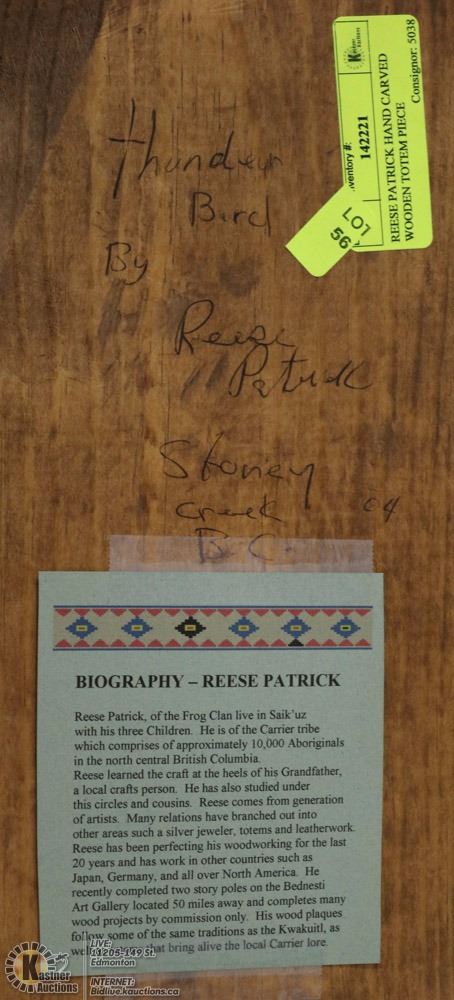 Thunder
Bird
By
Reese
Patrick
Stoney
Creek 04
B.C.
Kastner
Auctions
Inventory #:
142221
REESE PATRICK HAND CARVED
WOODEN TOTEM PIECE
Consignor: 5038
LOT
56
BIOGRAPHY – REESE PATRICK
Reese Patrick, of the Frog Clan live in Saik'uz
with his three Children. He is of the Carrier tribe
which comprises of approximately 10,000 Aboriginals
in the north central British Columbia.
Reese learned the craft at the heels of his Grandfather,
a local crafts person. He has also studied under
this circles and cousins. Reese comes from generation
of artists. Many relations have branched out into
other areas such a silver jeweler, totems and leatherwork.
Reese has been perfecting his woodworking for the last
20 years and has work in other countries such as
Japan, Germany, and all over North America. He
recently completed two story poles on the Bednesti
Art Gallery located 50 miles away and completes many
wood projects by commission only. His wood plaques
follow some of the same traditions as the Kwakuitl, as
that bring alive the local Carrier lore.
Kastner
Auctions
LIVE:
11205-149 St.
Edmonton
INTERNET:
Bidlive.kauctions.ca